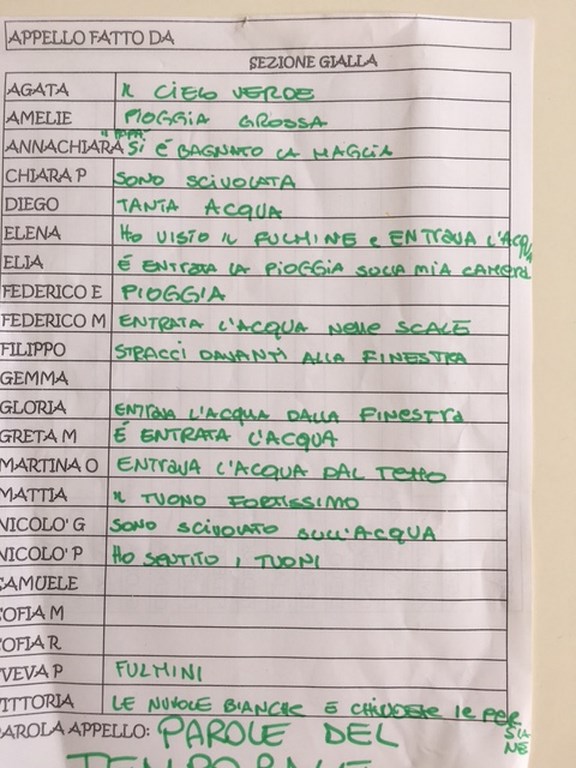 APPELLO FATTO DA
SEZIONE GIALLA
AGATA IL CIELO VERDE
AMELIE PIOGGIA GROSSA
ANNACHIARA "PAPÀ" SI È BAGNATO LA MAGLIA
CHIARA P SONO SCIVOLATA
DIEGO TANTA ACQUA
ELENA HO VISTO IL FULMINE e ENTRAVA L'ACQUA
ELIA È ENTRATA LA PIOGGIA SULLA MIA CAMERA
FEDERICO E PIOGGIA
FEDERICO M ENTRATA L'ACQUA NELLE SCALE
FILIPPO STRACCI DAVANTI ALLA FINESTRA
GEMMA
GLORIA ENTRAVA L'ACQUA DALLA FINESTRA
GRETA M È ENTRATA L'ACQUA
MARTINA O ENTRAVA L'ACQUA DAL TETTO
MATTIA IL TUONO FORTISSIMO
NICOLO' G SONO SCIVOLATO SULL'ACQUA
NICOLO' P HO SENTITO I TUONI
SAMUELE
SOFIA M
SOFIA R
VEVA P FULMINI
VITTORIA LE NUVOLE BIANCHE E CHIUDERE le PERSIANE
PAROLA APPELLO: PAROLE DEL
TEMPORALE